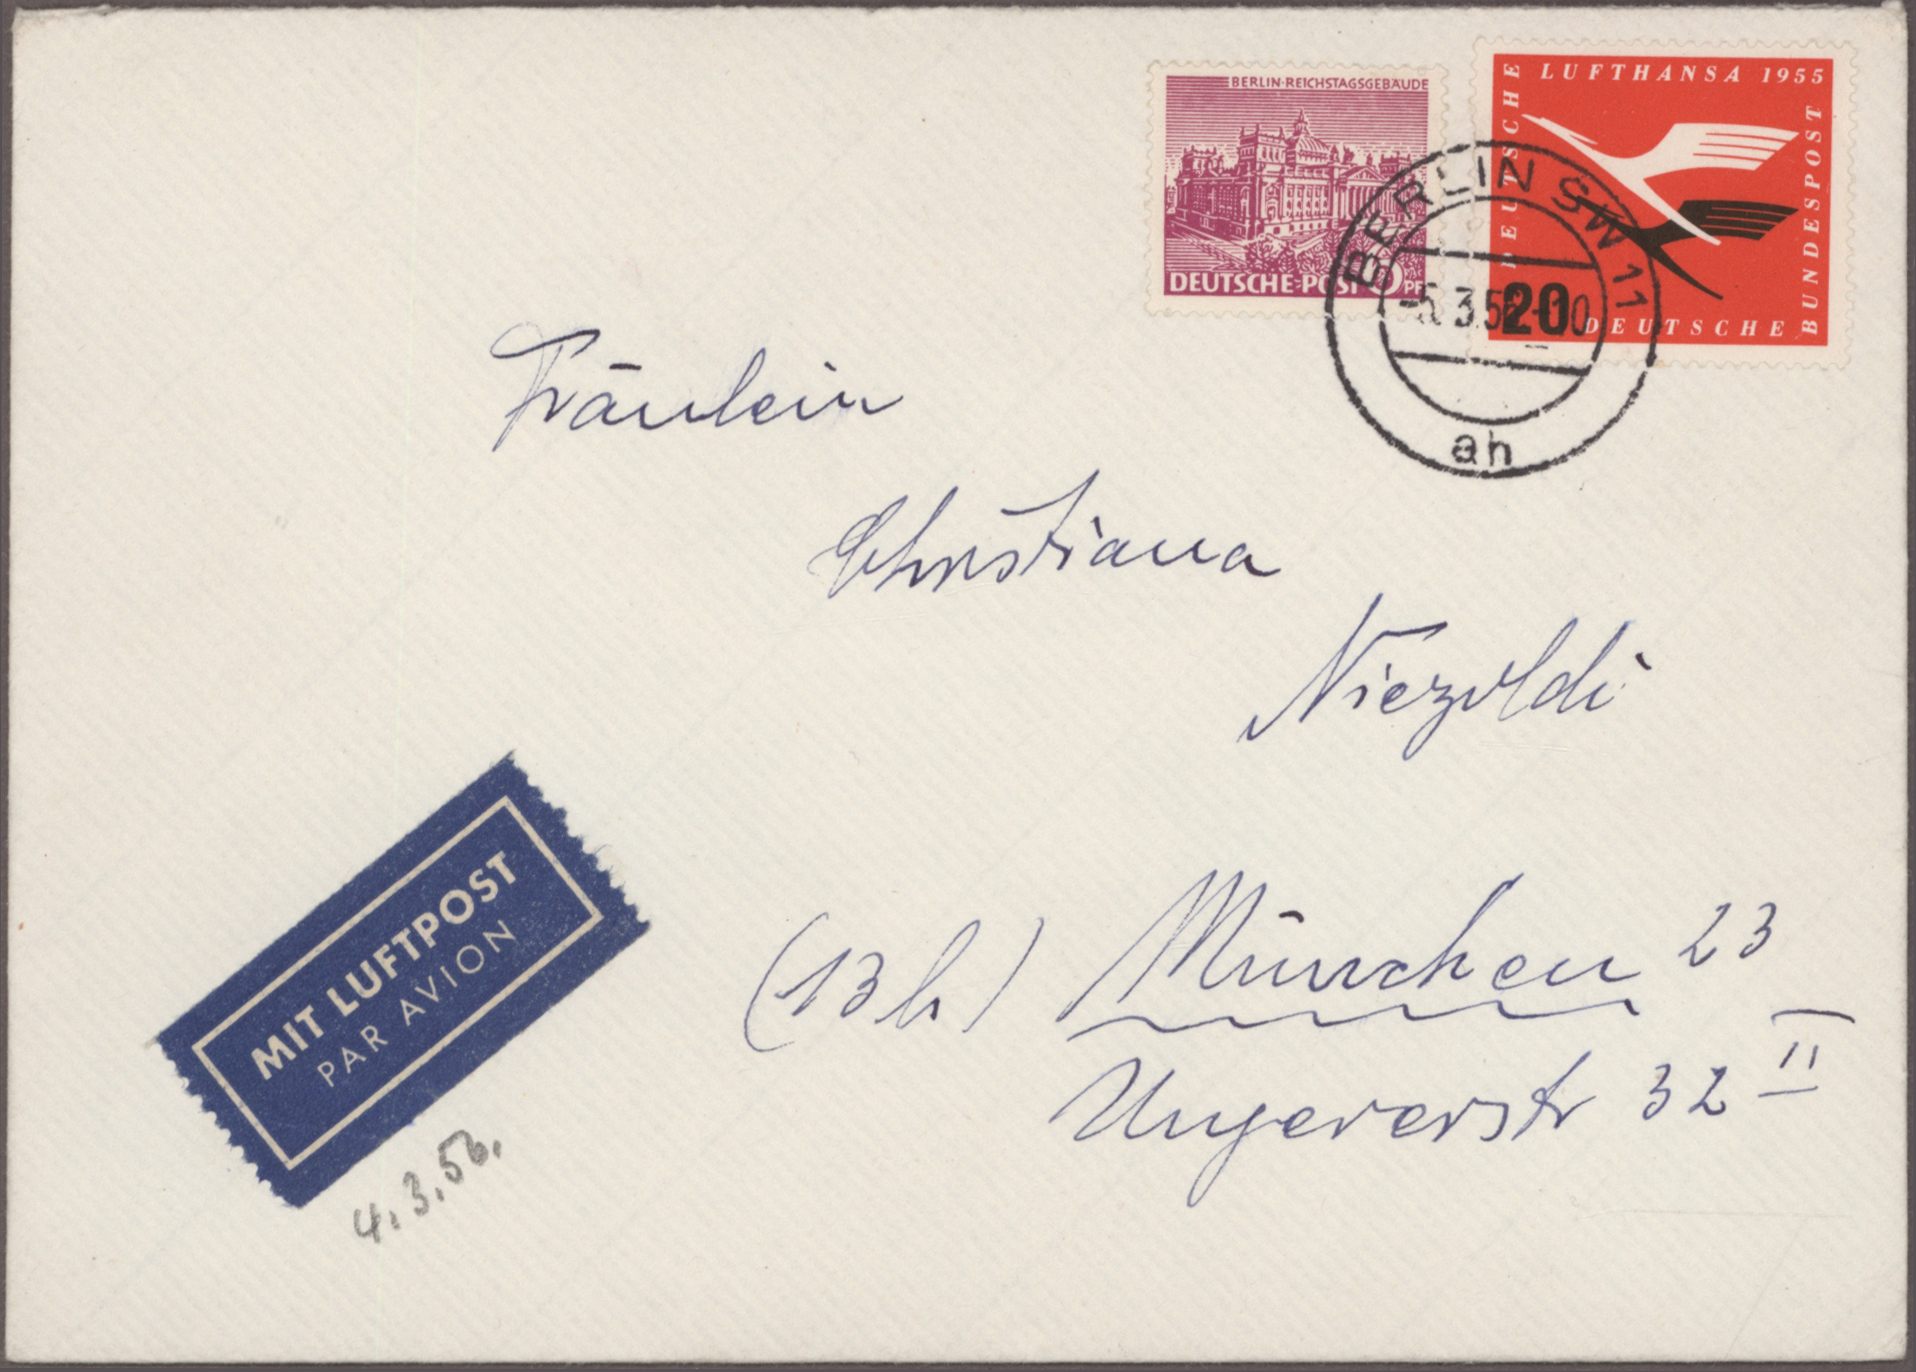 BERLIN-REICHSTAGSGEBÄUDE
DEUTSCHE-POST
PF
DEUTSCHE
LUFTHANSA 1955
BUNDESPOST
DEUTSCHE
20
BERLIN SW 11
-5.3.56
ah
Fräulein
Christiana
Niezoldi
(13b) München 23
Ungererstr 32 II
MIT LUFTPOST
PAR AVION
4.3.56.